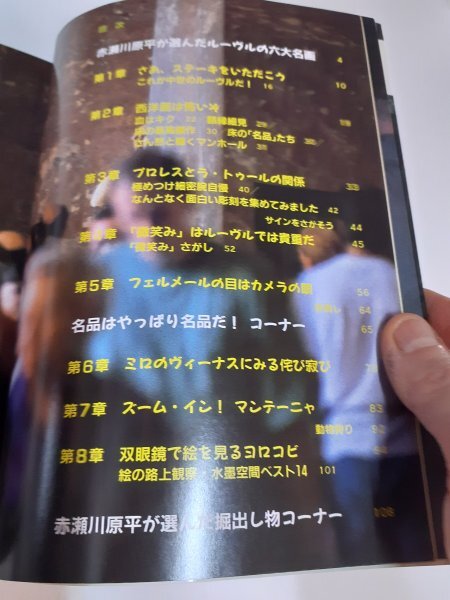 目次
赤瀬川原平が選んだルーヴルの六大名画 4
第1章 さあ、ステーキをいただこう 10
これが中世のルーヴルだ! 16
第2章 西洋館は怖いネ 19
血はキク 22 額縁細見 29
床の最高傑作 30 床の「名品」たち
なんだと驚くマンホール 31
第3章 プロレスとラ・トゥールの関係 33
極めつけ細密病自慢 40
なんとなく面白い彫刻を集めてみました 42
サインをさがそう 44
第4章 「微笑み」はルーヴルでは貴重だ 45
「微笑み」さがし 52
第5章 フェルメールの目はカメラの眼 56
64
名品はやっぱり名品だ! コーナー 65
第6章 ミロのヴィーナスにみる侘び寂び
第7章 ズーム・イン! マンテーニャ 83
動物
第8章 双眼鏡で絵を見るヨロコビ
絵の路上観察・水墨空間ベスト14 101
赤瀬川原平が選んだ掘出し物コーナー